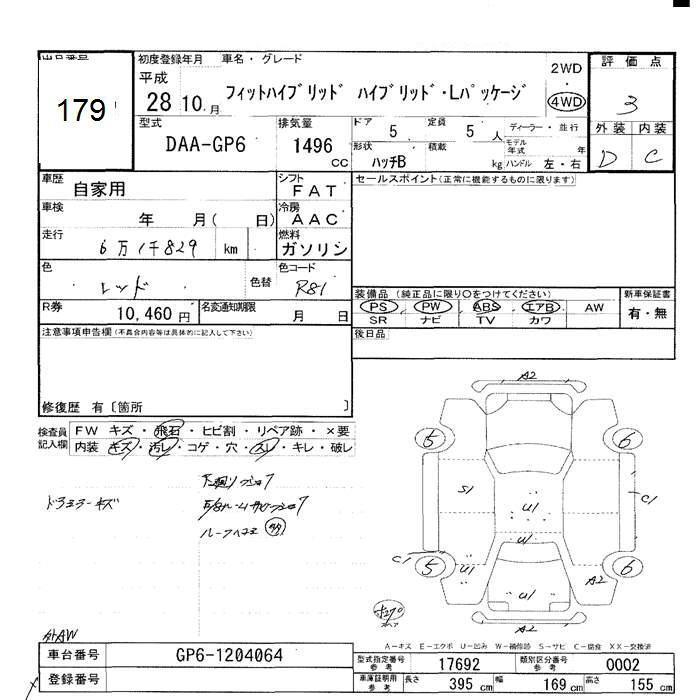 出品番号
179
初度登録年月 車名・グレード
平成 28 10月 フィットハイブリッド ハイブリッド・Lパッケージ
2WD
4WD
評価点
3
外装 内装
D C
型式 排気量 ドア 定員 ディーラー・並行
DAA-GP6 1496 cc 5 5 人
形状 積載 モデル年式 年
ハッチB kg ハンドル 左・右
車歴 自家用
シフト FAT
セールスポイント(正常に機能するものに限ります)
車検 年 月( 日)
冷房 AAC
走行 6万1千829 km
燃料 ガソリン
色 レッド 色替
色コード R81
R券 10,460円 名変通知期限 月 日
装備品(純正品に限り〇をつけてください)
PS PW ABS エアB AW
SR ナビ TV カワ
新車保証書
有・無
注意事項申告欄(不具合内容等は具体的に記入して下さい)
後日品
修復歴 有〔箇所 〕
検査員記入欄
FW キズ・飛石・ヒビ割・リペア跡・×要
内装 キズ・汚レ・コゲ・穴・スレ・キレ・破レ
下廻り
ドラミラーキズ
A2
5 6
S1 U1 C1
U1
C1 5 U1 6
A2
U1
A2
外AW
A-キズ E-エクボ U-凹み W-補修跡 S-サビ C-腐食 XX-交換済
車台番号 GP6-1204064
登録番号
型式指定番号 参考 17692 類別区分番号 参考 0002
車庫証明用 参考 長さ 395 cm 幅 169 cm 高さ 155 cm